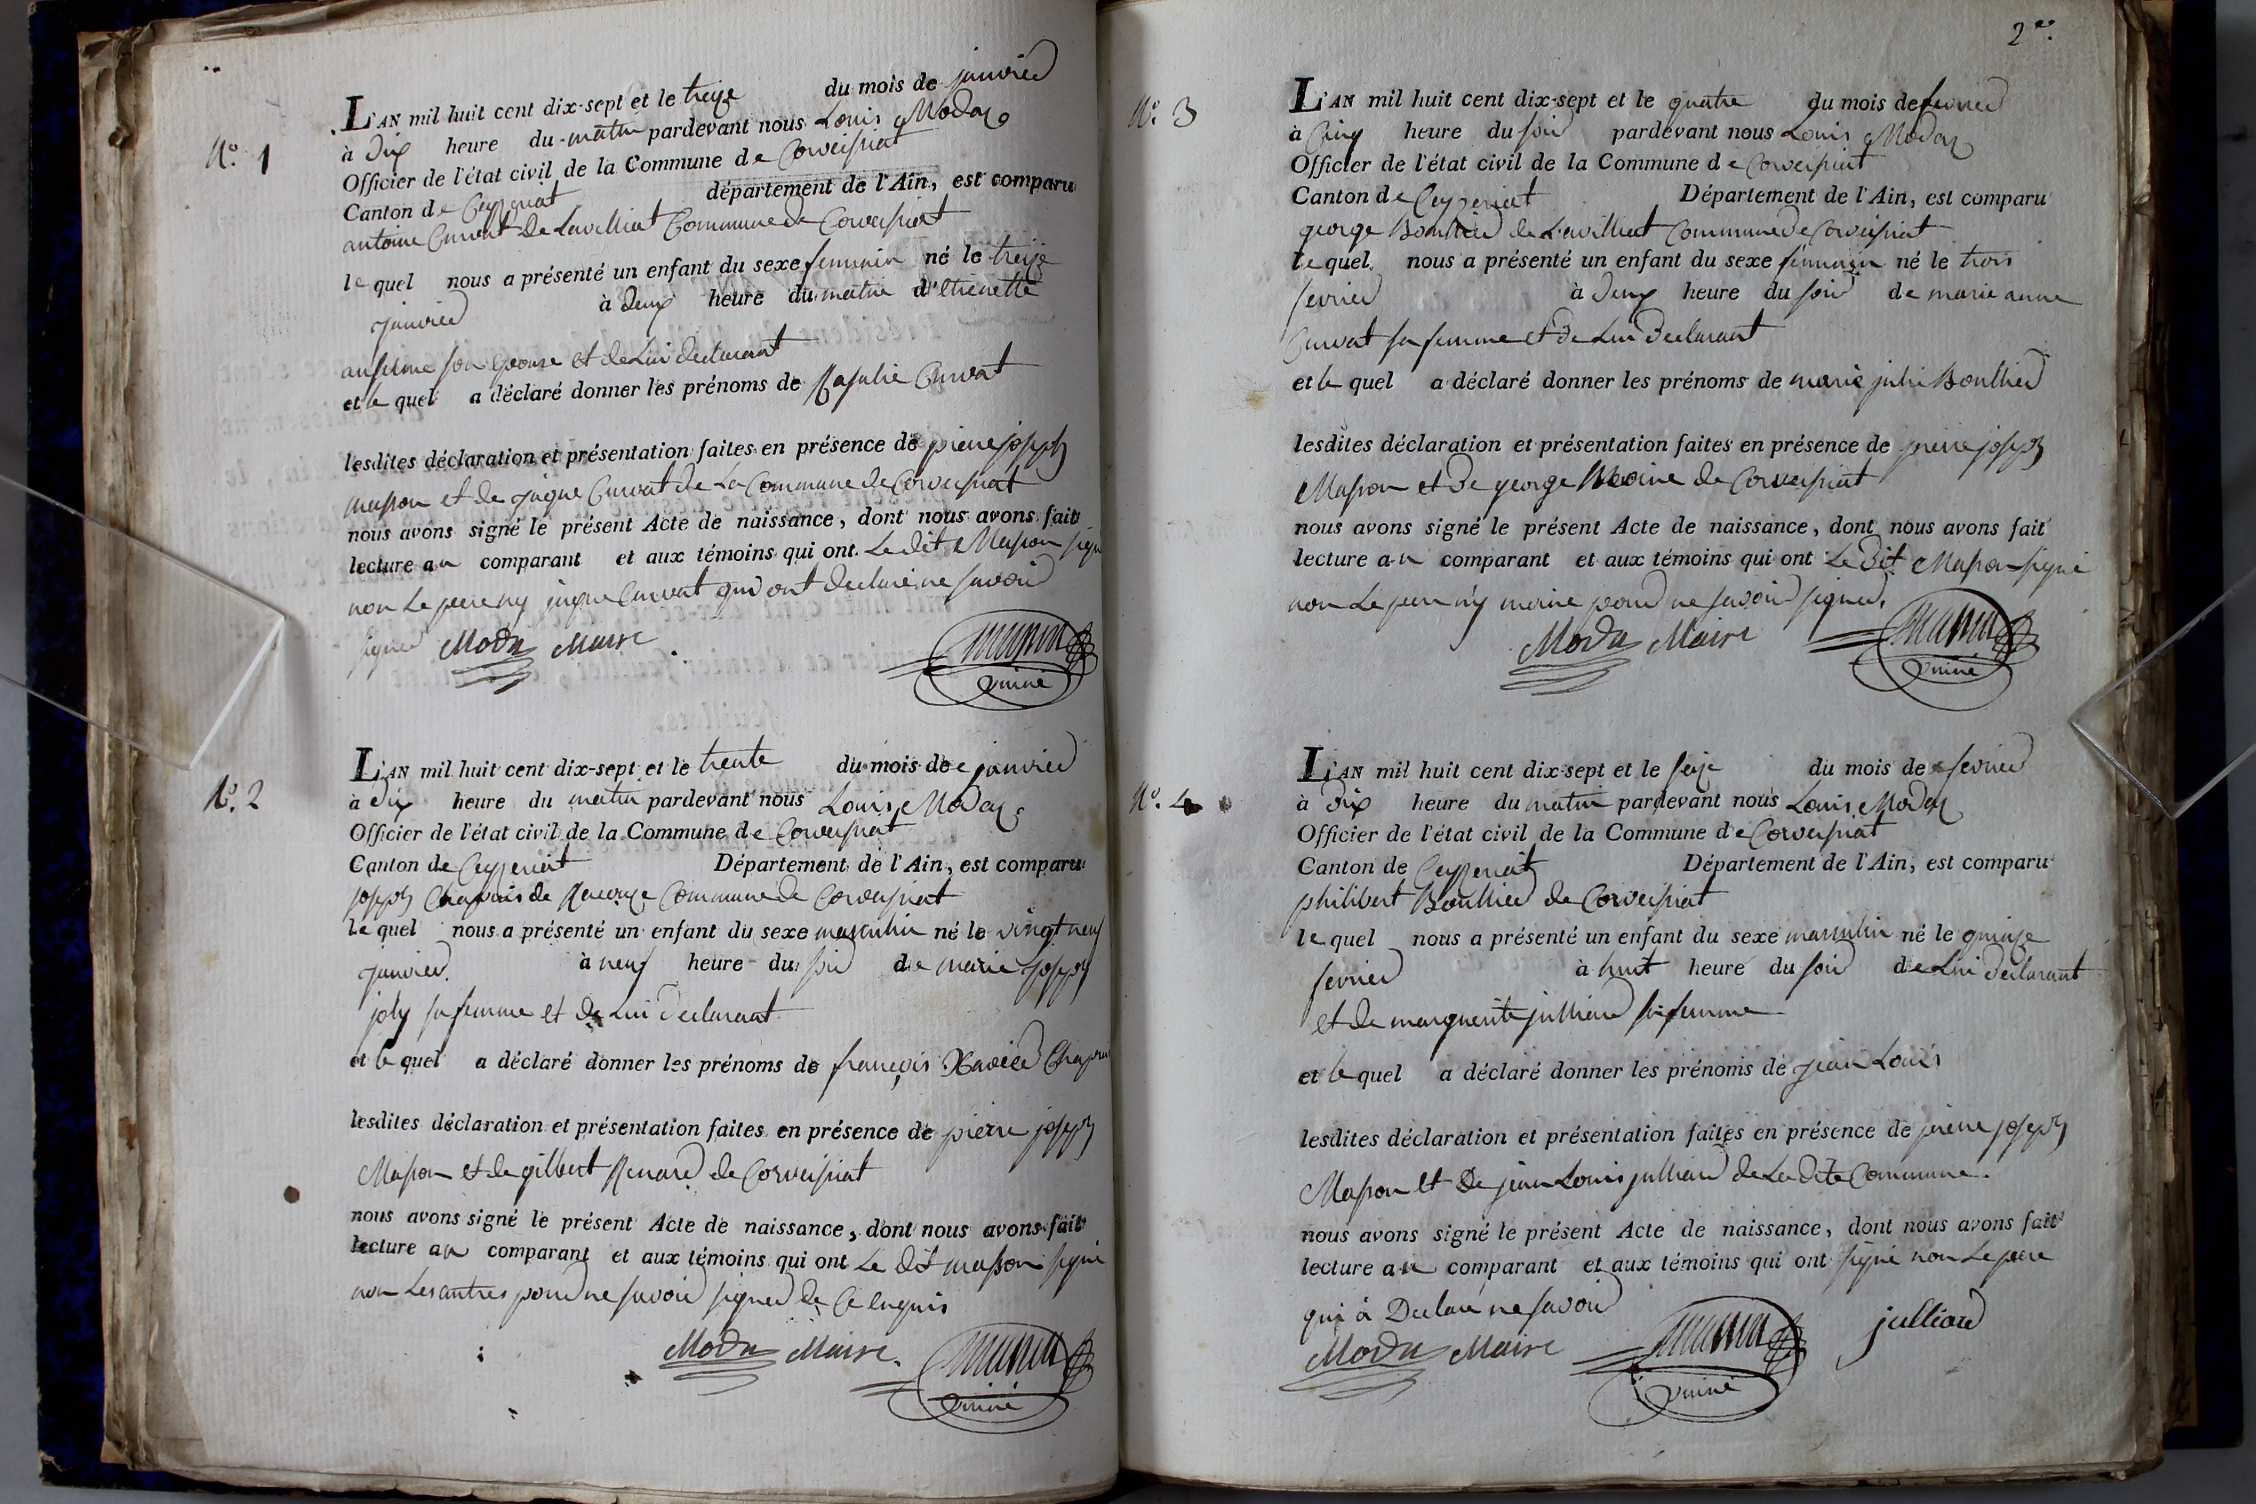 N.º 1
L'AN mil huit cent dix-sept et le treize du mois de janvier
à dix heure du matin pardevant nous Louis Modas
Officier de l'état civil de la Commune de Corveissiat
Canton de Ceyzeriat département de l'Ain, est comparu
antoine Curvat De Lavilliat Commune de Corveissiat
le quel nous a présenté un enfant du sexe feminin né le treize
janvier à deux heure du matin d'etienette
anselme son epouse et de Lui declarant
et le quel a déclaré donner les prénoms de Rasalie Curvat
lesdites déclaration et présentation faites en présence de pierre joseph
masson et de jaque Curvat de La Commune de Corveissiat
nous avons signé le présent Acte de naissance, dont nous avons fait
lecture au comparant et aux témoins qui ont Le dit Masson signé
non Le pere ny jaque Curvat qui ont declaré ne savoir
signer Modas Maire masson
N.º 2
L'AN mil huit cent dix-sept et le trente du mois de janvier
à dix heure du matin pardevant nous Louis Modas
Officier de l'état civil de la Commune de Corveissiat
Canton de Ceyzeriat Département de l'Ain, est comparu
joseph Chapuis de Commune de Corveissiat
le quel nous a présenté un enfant du sexe masculin né le vingt neuf
janvier à neuf heure du soir de marie joseph
joly sa femme et de Lui declarant
et le quel a déclaré donner les prénoms de françois Xavier Chapuis
lesdites déclaration et présentation faites en présence de pierre joseph
Masson et de gilbert Renard de Corveissiat
nous avons signé le présent Acte de naissance, dont nous avons fait
lecture au comparant et aux témoins qui ont Le dit masson signé
non Les autres pour ne savoir signer de Ce enquis
Modas Maire. masson
2.e
N.º 3
L'AN mil huit cent dix-sept et le quatre du mois de fevrier
à Cinq heure du soir pardevant nous Louis Modas
Officier de l'état civil de la Commune de Corveissiat
Canton de Ceyzeriat Département de l'Ain, est comparu
george Boullier de Lavilliat Commune de Corveissiat
le quel nous a présenté un enfant du sexe feminin né le trois
fevrier à deux heure du soir de marie anne
Curvat sa femme et de Lui declarant
et le quel a déclaré donner les prénoms de marie julie Boullier
lesdites déclaration et présentation faites en présence de pierre joseph
Masson et de george Moine de Corveissiat
nous avons signé le présent Acte de naissance, dont nous avons fait
lecture au comparant et aux témoins qui ont Le dit Masson signé
non Le pere n'y moine pour ne savoir signer.
Modas Maire masson
N.º 4
L'AN mil huit cent dix-sept et le seize du mois de fevrier
à dix heure du matin pardevant nous Louis Modas
Officier de l'état civil de la Commune de Corveissiat
Canton de Ceyzeriat Département de l'Ain, est comparu
philibert Boullier de Corveissiat
le quel nous a présenté un enfant du sexe masculin né le quinze
fevrier à huit heure du soir de Lui declarant
et de marguerite julliard sa femme
et le quel a déclaré donner les prénoms de jean Louis
lesdites déclaration et présentation faites en présence de pierre joseph
Masson et De jean Louis julliard de La dite Commune.
nous avons signé le présent Acte de naissance, dont nous avons fait
lecture au comparant et aux témoins qui ont signé non Le pere
qui à Declaré ne savoir
Modas Maire masson julliard